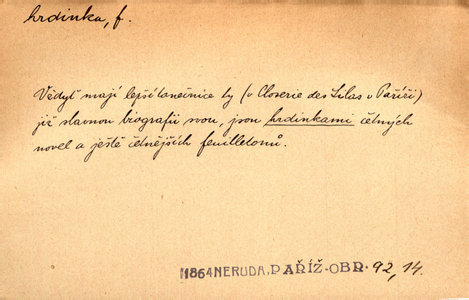 hrdinka, f.
Vždyť mají lepší tanečnice ty (v Closerie des Lilas v Paříži)
již slavnou biografii svou, jsou hrdinkami četných
novel a ještě četnějších feuilletonů.
1864 NERUDA, PAŘÍŽ-OBR. 92, 14.